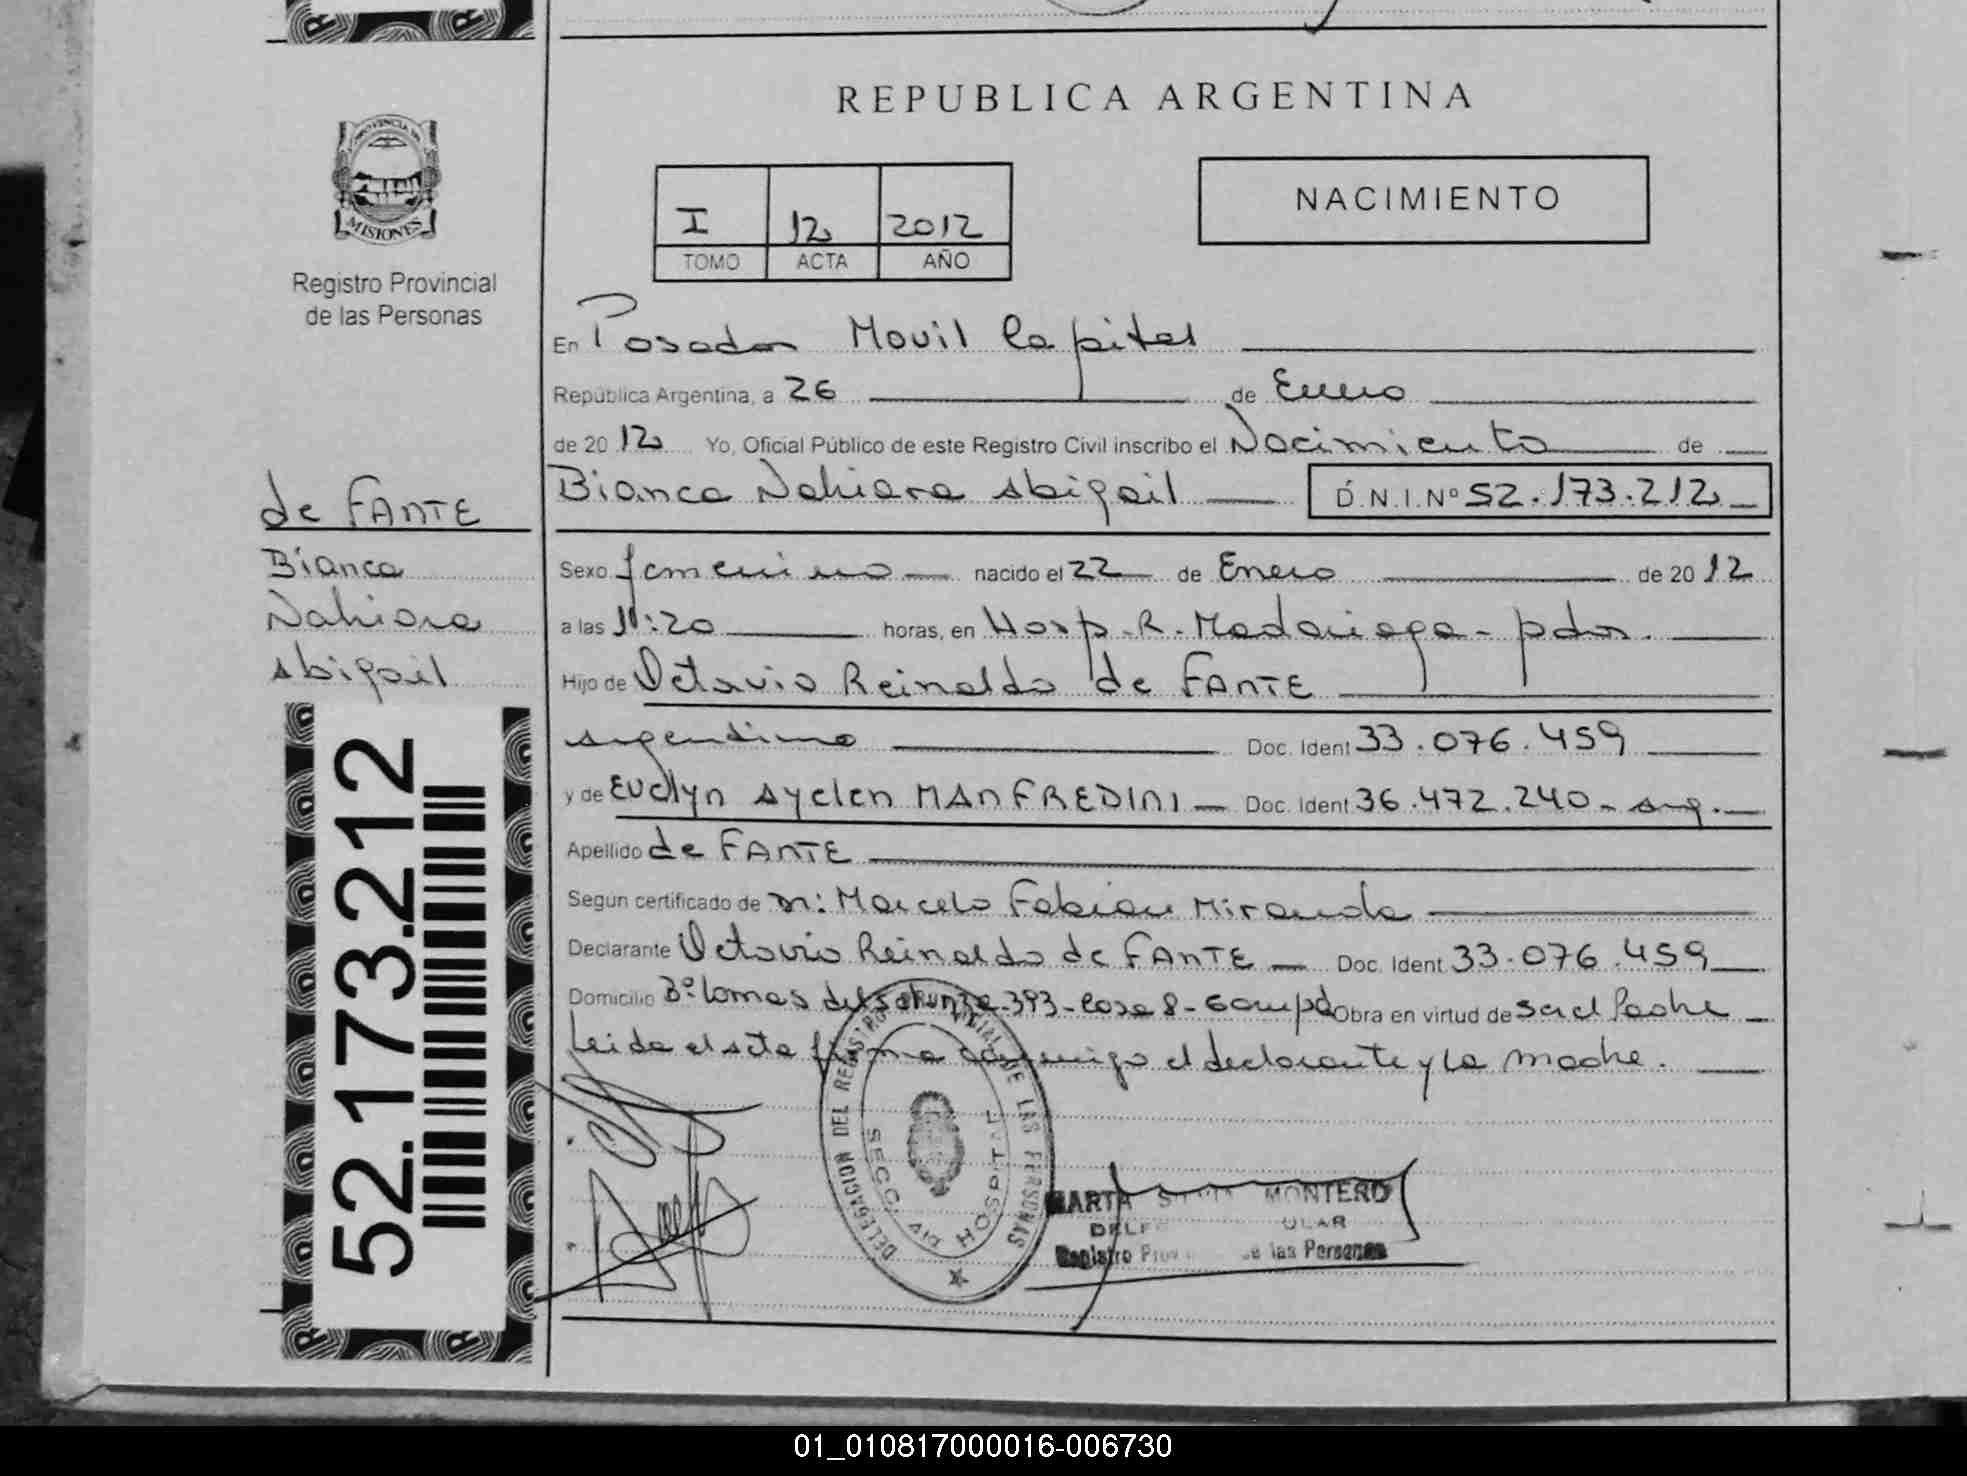 REPUBLICA ARGENTINA
PROVINCIA DE
MISIONES
Registro Provincial
de las Personas
NACIMIENTO
I 12 2012
TOMO ACTA AÑO
En Posadas Movil Capital
República Argentina, a 26 de Enero
de 2012 Yo, Oficial Público de este Registro Civil inscribo el Nacimiento de
Bianca Nahiara Abigail D.N.I.Nº 52.173.212
de FANTE
Bianca
Nahiara
Abigail
52.173.212
Sexo femenino nacido el 22 de Enero de 2012
a las 11:20 horas, en Hosp. R. Madariaga - pdas.
Hijo de Octavio Reinaldo de FANTE
argentino Doc. Ident 33.076.459
y de Evelyn Ayelen MANFREDINI Doc. Ident 36.472.240 - arg.
Apellido de FANTE
Según certificado de m: Marcelo Fabian Miranda
Declarante Octavio Reinaldo de FANTE Doc. Ident 33.076.459
Domicilio Bº Lomas del 393 - Casa 8 - Obra en virtud de ser el Padre
Leida el acta firma conmigo el declarante y la madre.
DELEGACION DEL REGISTRO PROVINCIAL DE LAS PERSONAS
SECC. HOSPITAL
MARTA MONTERO
Registro de las Personas
01_010817000016-006730